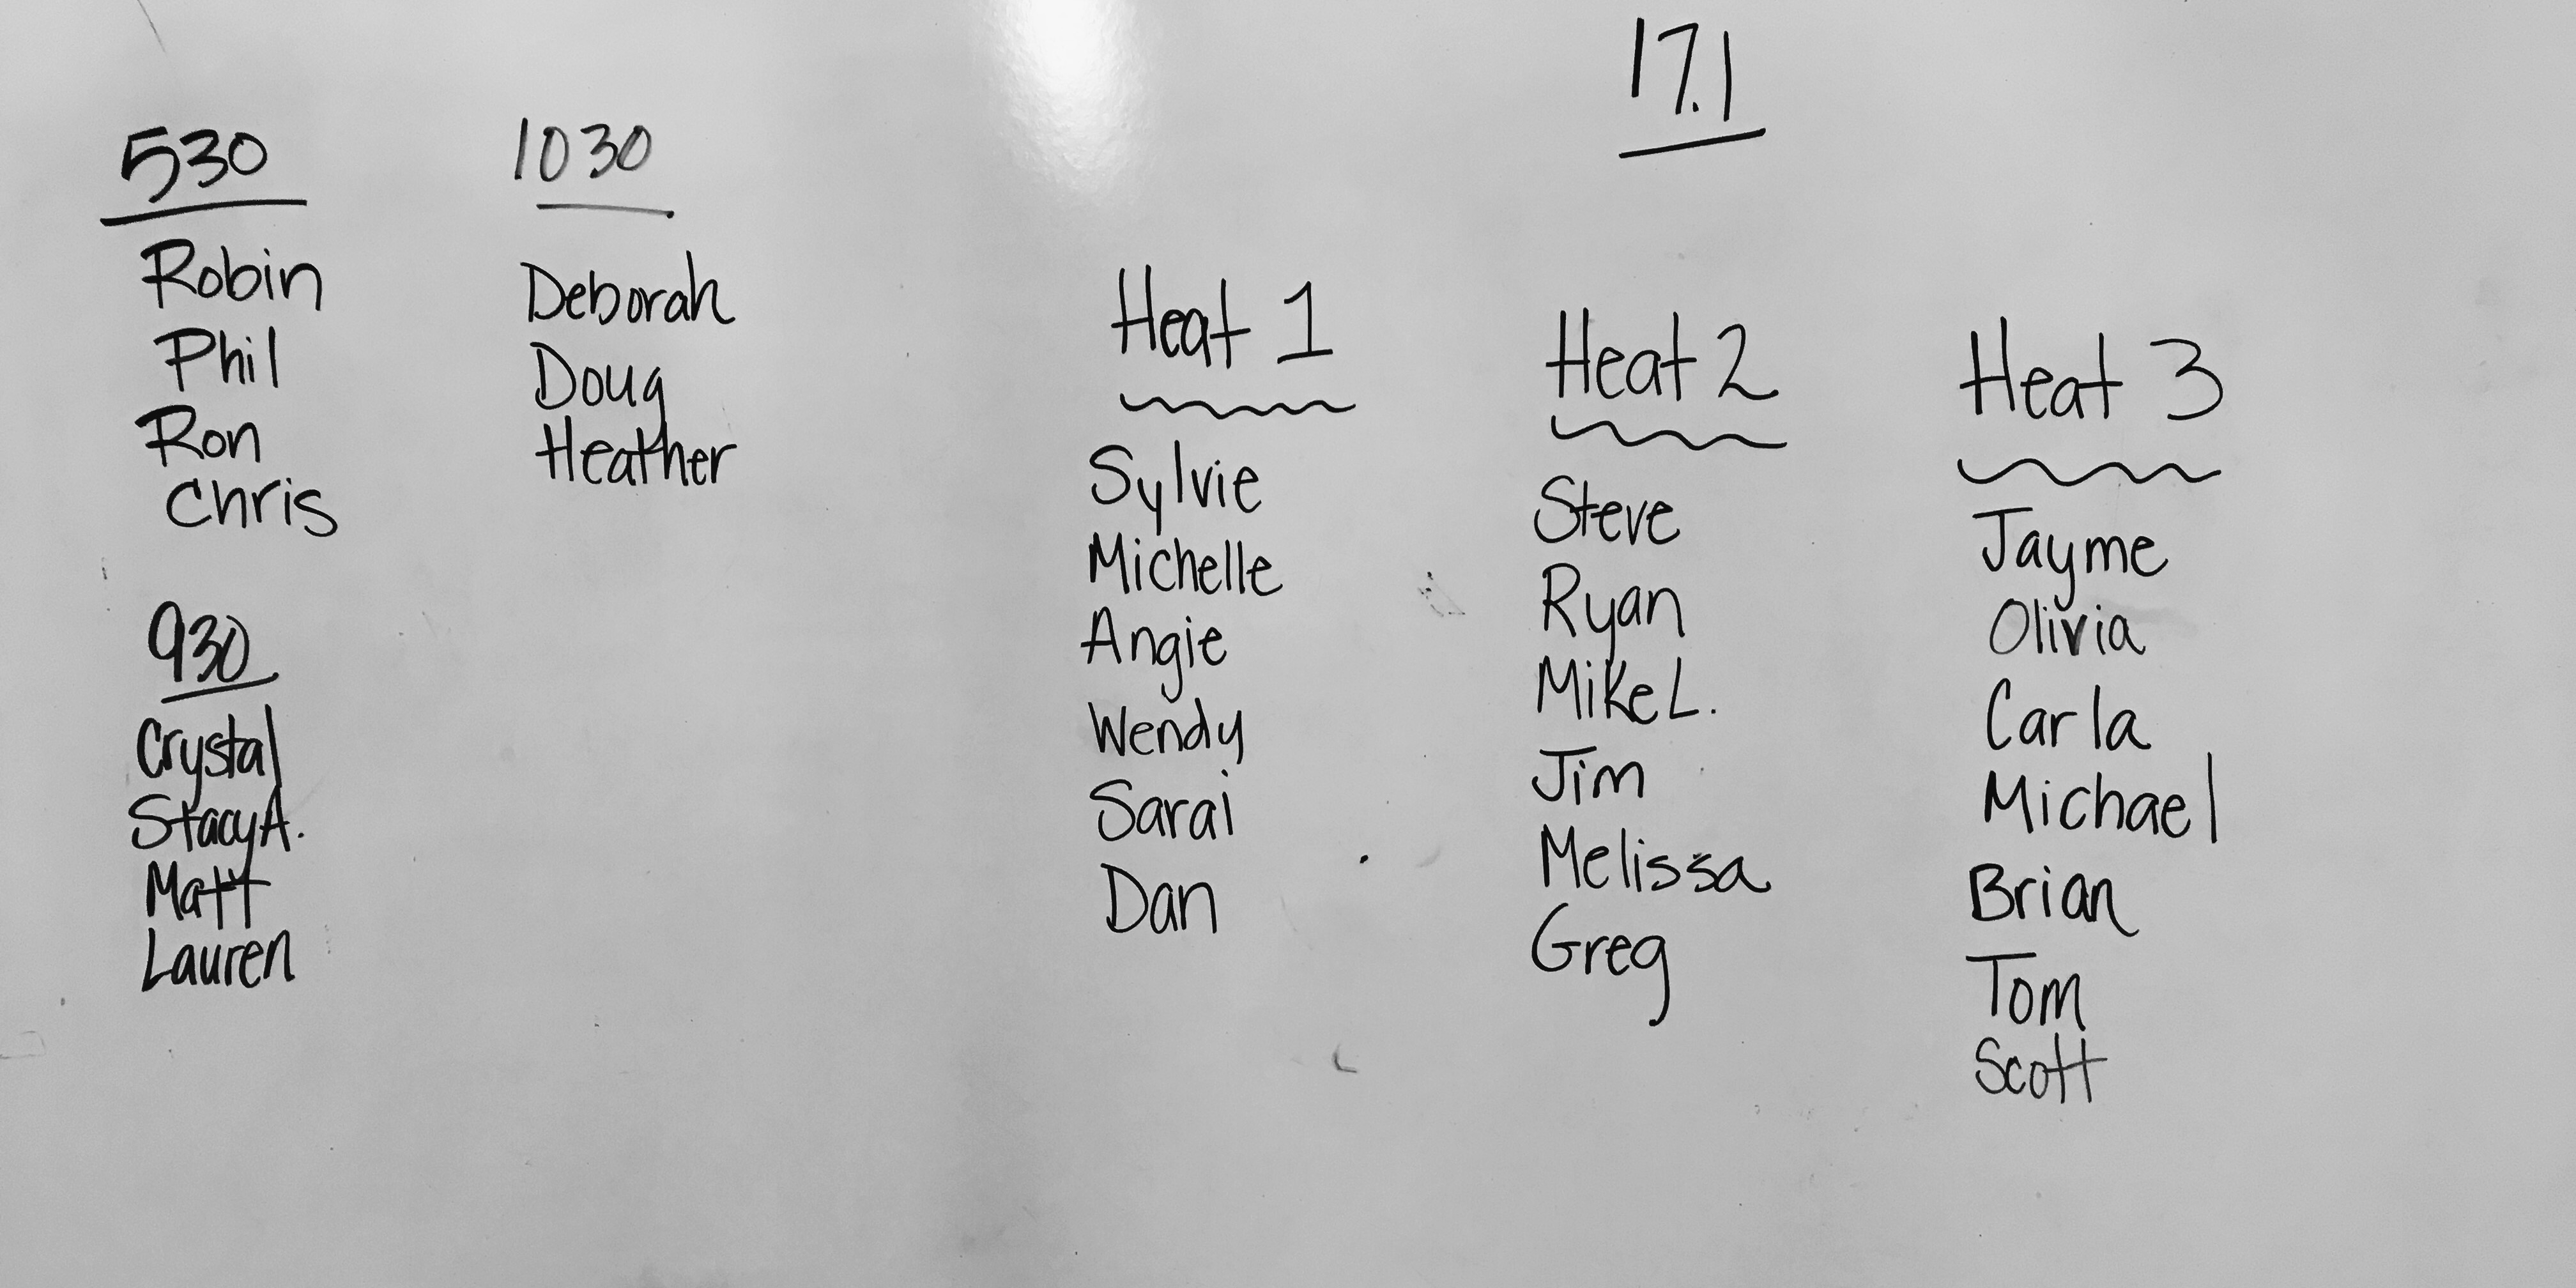 530
Robin
Phil
Ron
Chris
930
Crystal
Stacy A.
Matt
Lauren
1030
Deborah
Doug
Heather
17.1
Heat 1
Sylvie
Michelle
Angie
Wendy
Sarai
Dan
Heat 2
Steve
Ryan
Mike L.
Jim
Melissa
Greg
Heat 3
Jayme
Olivia
Carla
Michael
Brian
Tom
Scott